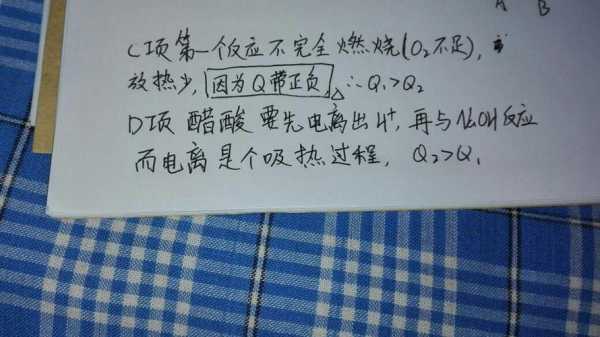 A B
C项 第一个反应不完全燃烧(O₂不足),
放热少, 因为Q带正负, ∴Q₁>Q₂
D项 醋酸要先电离出H⁺, 再与NaOH反应
而电离是个吸热过程, Q₂>Q₁